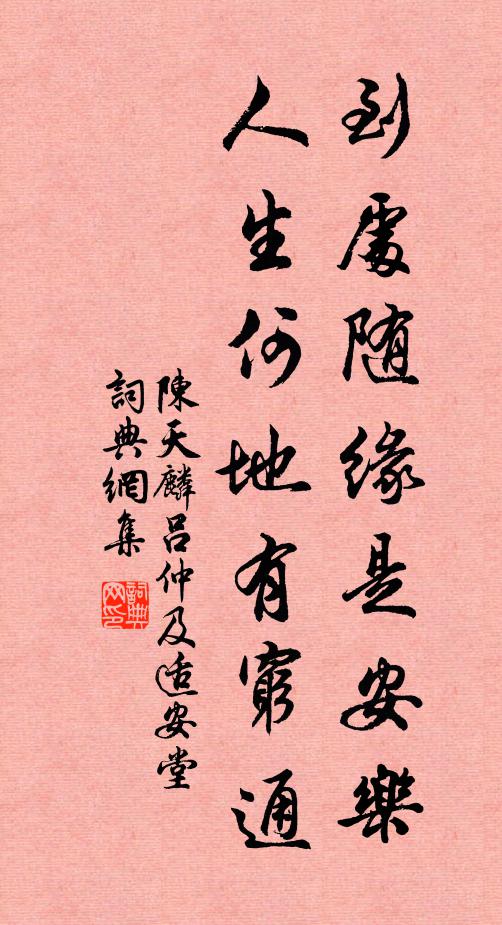 到處随緣是安樂
人生何地有窮通
陳天麟吕仲及适安堂
詞典網集
詞典网印